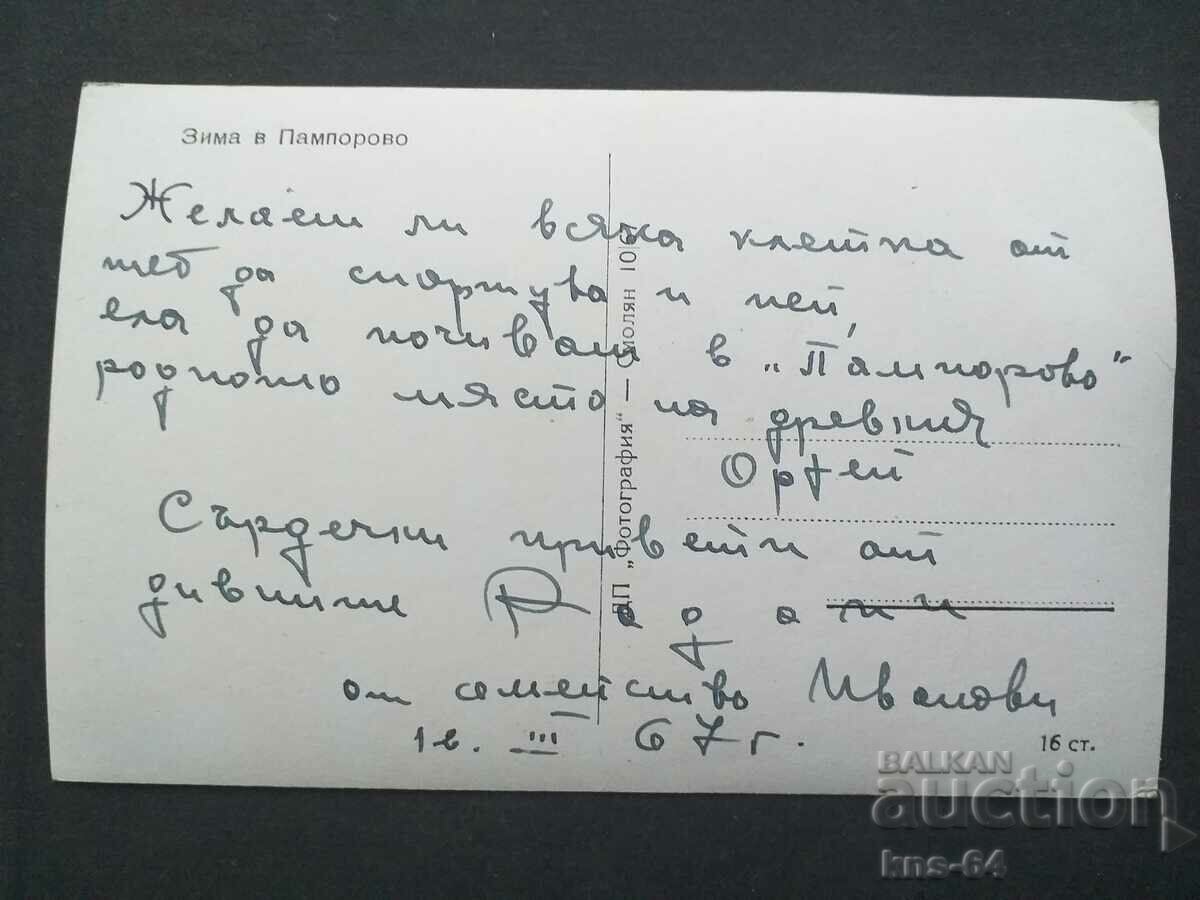 Зима в Пампорово
Желаеш ли всяка клетка от
теб да спортува и пей,
ела да почиваш в „Пампорово"
родното място на древния
Орфей
Сърдечни привети от
дивните Родопи
от семейство Иванови
1в. III 67 г.
ДП „Фотография" — Смолян 10
16 ст.
BALKAN
auction
kns-64